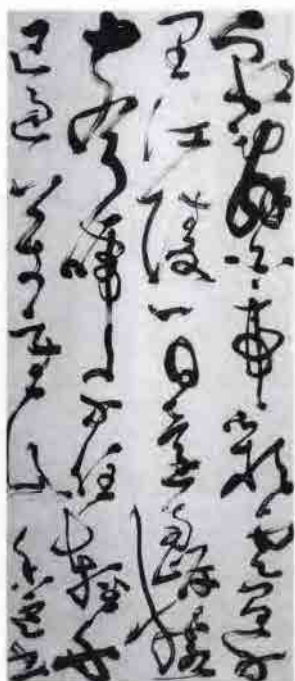 朝辭白帝彩雲間千
里江陵一日還兩岸猿
聲啼不住輕舟
已過萬重山